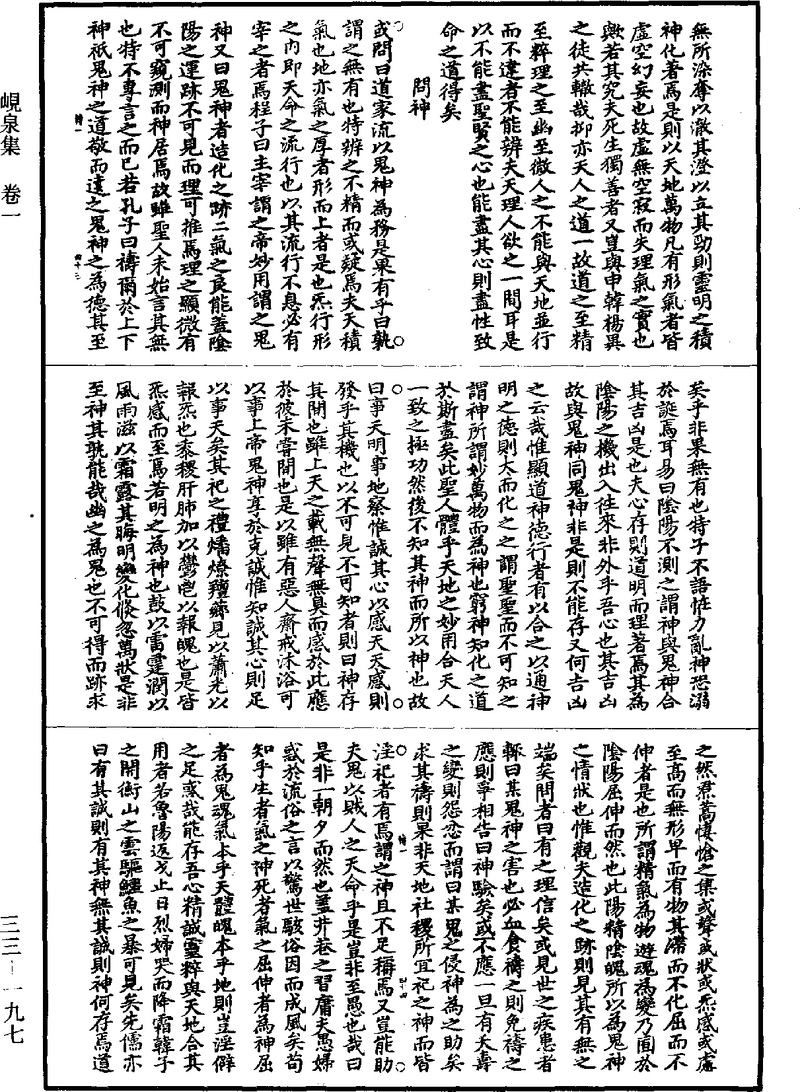 峴泉集 卷一
三三－一九七
無所染奪以澂其澄以立其勁則靈明之積
神化著焉是則以天地萬物凡有形氣者皆
虛空幻妄也故虛無空寂而失理氣之實也
歟若其究夫死生獨善者又豈與申韓楊異
之徒共轍哉抑亦天人之道一故道之至精
至粹理之至幽至微人之不能與天地並行
而不違者不能辨夫天理人欲之一間耳是
以不能盡聖賢之心也能盡其心則盡性致
命之道得矣
問神
或問曰道家流以鬼神為務是果有乎曰孰
謂之無有也特辨之不精而或疑焉夫天積
氣也地亦氣之厚者形而上者是也炁行形
之內即天命之流行也以其流行不息必有
宰之者焉程子曰主宰謂之帝妙用謂之鬼
神又曰鬼神者造化之跡二氣之良能蓋陰
陽之運跡不可見而理可推焉理之顯微有
不可窺測而神居焉故雖聖人未始言其無
也特不專言之而已若孔子曰禱爾於上下
神祇鬼神之道敬而遠之鬼神之為德其至
矣乎非果無有也特子不語怪力亂神恐溺
於誕焉耳易曰陰陽不測之謂神與鬼神合
其吉凶是也夫心存則道明而理著焉其為
陰陽之機出入往來非外乎吾心也其吉凶
故與鬼神同鬼神非是則不能存又何吉凶
之云哉惟顯道神德行者有以合之以通神
明之德則大而化之之謂聖聖而不可知之
謂神所謂妙萬物而為神也窮神知化之道
於斯盡矣此聖人體乎天地之妙用合天人
一致之極功然後不知其神而所以神也故
曰事天明事地察惟誠其心以感天天感則
發乎其機也以不可見不可知者則曰神存
其間也雖上天之載無聲無臭而感於此應
於彼未嘗間也是以雖有惡人齋戒沐浴可
以事上帝鬼神享於克誠惟知誠其心則足
以事天矣其祀之禮燔燎羶薌見以蕭光以
報炁也黍稷肝肺加以鬱鬯以報魄也是皆
炁感而至焉若明之為神也鼓以雷霆潤以
風雨滋以霜露其晦明變化倏忽萬狀是非
至神其孰能哉幽之為鬼也不可得而跡求
之然焄蒿悽愴之集或聲或狀或炁感或處
至高而無形卑而有物其滯而不化屈而不
伸者是也所謂精氣為物遊魂為變乃囿於
陰陽屈伸而然也此陽精陰魄所以為鬼神
之情狀也惟觀夫造化之跡則見其有無之
端矣問者曰有之理信矣或見世之疾患者
輒曰某鬼神之害也必血食禱之則免禱之
應則爭相告曰神驗矣或不應一旦有夭壽
之變則怨忿而謂曰某鬼之侵神為之助矣
求其禱則果非天地社稷所宜祀之神而皆
淫祀者有焉謂之神且不足稱焉又豈能助
夫鬼以賊人之天命乎是豈非至愚也哉曰
是非一朝夕而然也蓋井巷之習庸夫愚婦
惑於流俗之言以驚世駭俗因而成風矣苟
知乎生者氣之神死者氣之屈伸者為神屈
者為鬼魂氣本乎天體魄本乎地則豈淫僻
之足惑哉能存吾心精誠靈粹與天地合其
用者若魯陽返戈止日烈婦哭而降霜韓子
之開衡山之雲驅鱷魚之暴可見矣先儒亦
曰有其誠則有其神無其誠則神何存焉道